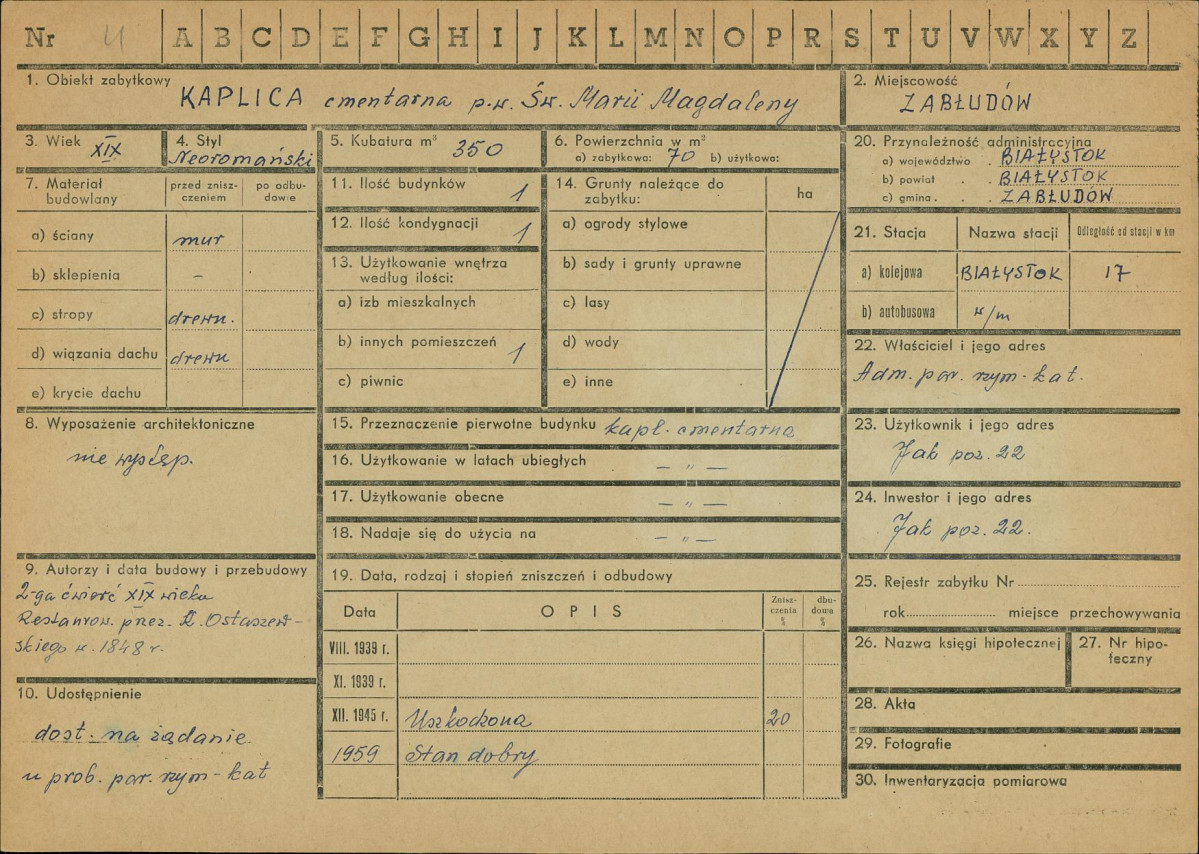 Nr 4 A B C D E F G H I J K L M N O P R S T U V W X Y Z
1. Obiekt zabytkowy KAPLICA cmentarna p.w. Św. Marii Magdaleny
2. Miejscowość
ZABŁUDÓW
3. Wiek XIX
4. Styl Neoromański
5. Kubatura m³ 350
6. Powierzchnia w m²
a) zabytkowa: 70 b) użytkowa:
7. Materiał budowlany
przed zniszczeniem
po odbudowie
a) ściany mur
b) sklepienia –
c) stropy drewn.
d) wiązania dachu drewn
e) krycie dachu
8. Wyposażenie architektoniczne
nie występ.
9. Autorzy i data budowy i przebudowy
2-ga ćwierć XIX wieku
Restaurow. przez. Ostaszew-
skiego w. 1848 r.
10. Udostępnienie
dost. na żądanie
u prob. par. rzym-kat
11. Ilość budynków 1
12. Ilość kondygnacji 1
13. Użytkowanie wnętrza
według ilości:
a) izb mieszkalnych
b) innych pomieszczeń 1
c) piwnic
14. Grunty należące do
zabytku:
ha
a) ogrody stylowe
b) sady i grunty uprawne
c) lasy
d) wody
e) inne
15. Przeznaczenie pierwotne budynku kapl. cmentarna
16. Użytkowanie w latach ubiegłych – " –
17. Użytkowanie obecne – " –
18. Nadaje się do użycia na – " –
19. Data, rodzaj i stopień zniszczeń i odbudowy
Data OPIS Zniszczenia % dbudowa %
VIII. 1939 r.
XI. 1939 r.
XII. 1945 r. Uszkodzona 20
1959 Stan dobry
20. Przynależność administracyjna
a) województwo . BIAŁYSTOK
b) powiat . . BIAŁYSTOK
c) gmina . . ZABŁUDÓW
21. Stacja Nazwa stacji Odległość od stacji w km
a) kolejowa BIAŁYSTOK 17
b) autobusowa w/m
22. Właściciel i jego adres
Adm. par. rzym-kat.
23. Użytkownik i jego adres
Jak poz. 22
24. Inwestor i jego adres
Jak poz. 22.
25. Rejestr zabytku Nr
rok miejsce przechowywania
26. Nazwa księgi hipotecznej
27. Nr hipo-
teczny
28. Akta
29. Fotografie
30. Inwentaryzacja pomiarowa